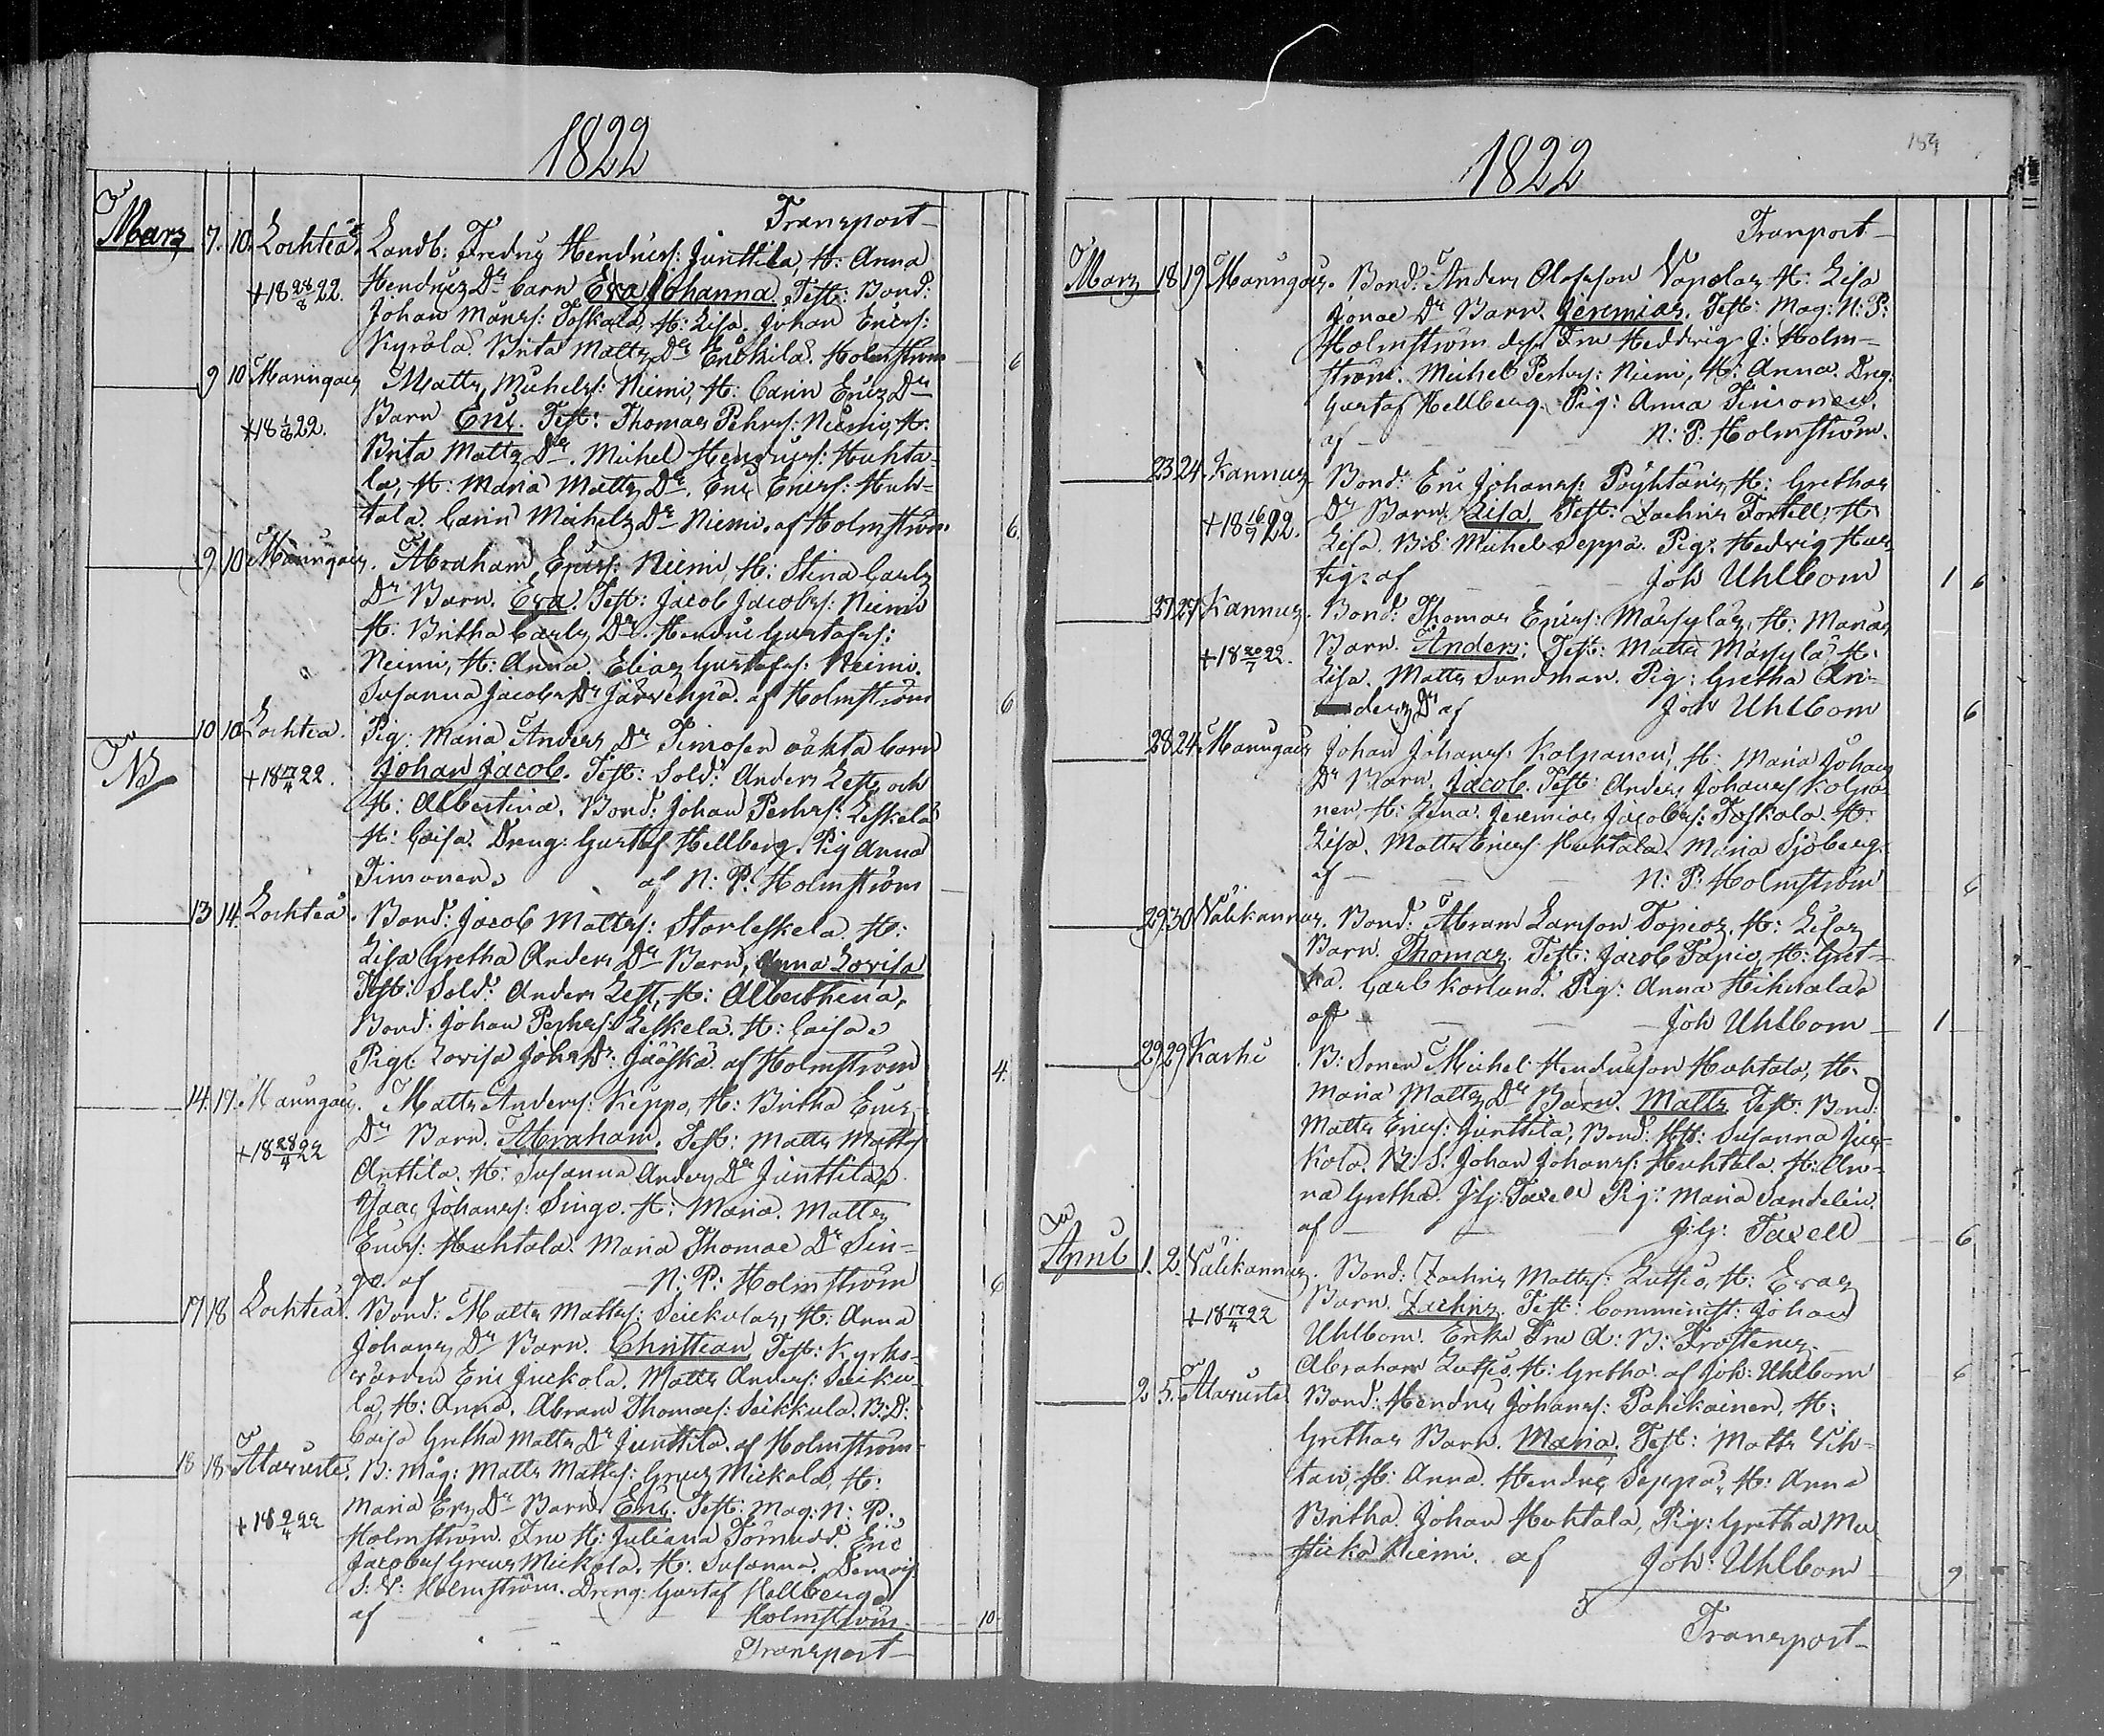 1822
Transport
Mars 7. 10. Lochteå. Landb: Fredric Hendrics: Junttila, H: Anna
+18 28/8 22. Hendrics Dr barn Eva Johanna. Test: Bond:
Johan Månss: Toskala, H: Lisa. Johan Erics:
Kyrölä. Brita Matts Dr Holmström 6
9 10 Maringais Matts Michels: Niemi, H: Carin Erics Dr
+18 22. Barn Eric. Test: Thomas Pehrs: Niemi, H:
Brita Matts Dr. Michel Hendrics: Huhta-
la, H: Maria Matts Dr. Eric Erics: Huh-
tala. Carin Michels Dr Niemi. af Holmström. 6
9 10 Maringais. Abraham Erics: Niemi, H: Stina Carls
Dr Barn. Eva. Test: Jacob Jacobs: Niemi
H: Britha Carls Dr. Hendric Gustafs:
Niemi, H: Anna. Elias Gustafs: Niemi.
Susanna Jacobs Dr Järvenpä. af Holmström 6
10 10 Lochteå. Pig: Maria Anders Dr Timosen oäkta barn
NB +18 17/4 22. Johan Jacob. Test: Sold: Anders Lest, och
H: Albertina. Bond: Johan Pehrs: Leskelä
H: Caisa. Dreng: Gustaf Hellberg. Pig Anna
Timonen. af N: P: Holmström
13 14. Lochteå. Bond: Jacob Matts: Storleskelä. H:
Lisa Gretha Anders Dr Barn, Anna Lovisa
Test: Sold: Anders Lest, H: Alberthina,
Bond: Johan Pehrs: Leskelä. H: Caisa.
Pig: Lovisa Johs Dr: Jääskä. af Holmström 4.
14. 17. Maringais. Matts Anders: Keppo, H: Britha Erics
+18 28/4 22 Dr Barn. Abraham. Test: Matts Matts
Anttila. H: Susanna Anders Dr Junttila,
Isaac Johans: Singo. H: Maria. Matts
Erics: Huhtala. Maria Thomae Dr Sin-
go. af N: P: Holmström 6
17 18 Lochteå. Bond: Matts Matts: Seikulas, H: Anna
Johans Dr Barn. Christian Test: Kyrko-
värden Eric Juckola. Matts Anders: Seiku-
la, H: Anna. Abram Thomas: Seikkula. B: D:
Caisa Gretha Matts Dr Junttila. af Holmström
18 18 Alaviirte. B: Måg: Matts Matts: Greus Mickola, H:
+18 9/4 22 Maria Ers Dr Barn Eric. Test: Mag: N: P:
Holmström. Fru H: Juliana Törnudd. Eric
Jacobs Greus Mickola. H: Susanna. Demois:
S: V: Holmström. Dreng: Gustaf Hellberg
af Holmström 10
Transport
1822
Transport
Mars 18 19 Maringais. Bond: Anders Olofsson Vapolas H: Lisa
Jonae Dr Barn. Jeremias. Test: Mag: N: P:
Holmström dess Fru Heddvig J: Holm-
ström. Michel Pehrs: Niemi, H: Anna. Dreg.
Gustaf Hellberg. Pig: Anna Timonen.
af N: P: Holmström.
23 24. Kannus Bond: Eric Johans: Pöyhtäris H: Grethas
+18 16/9 22. Dr Barn. Lisa Test: Zachris Tortell, H:
Lisa. B: S: Michel Seppä. Pig: Hedvig Has
tig: af Joh Uhlbom 1 6
27 27 Kannus. Bond: Thomas Erics: Märsyläs, H: Marias
+18 20/7 22. Barn. Anders: Test: Matts Märsylä H:
Lisa. Matts Sundman. Pig: Gretha An-
ders Dr af Joh Uhlbom 6
28 24 Maringais Johan Johans: Kolpanen, H: Maria Johans
Dr Barn. Jacob. Test: Anders Johans Kolpa-
nen, H: Lena. Jeremias Jacobs: Toskala. H:
Lisa. Matts Erics: Huhtala. Maria Sjöberg.
af N: P: Holmström 6
29 30 Välikannus. Bond: Abram Larsson Tapios. H: Lisas
Barn. Thomas. Test: Jacob Tapio, H: Gret-
ha. Carl Korlund. Pig: Anna Hihnala.
af Joh Uhlbom 1
29 29 Karhi. B: Sonen Michel Hendricsson Huhtala, H:
Maria Matts Dr Barn. Matts Test: Bond:
Matts Erics: Junttila, Bond: H: Susanna Juc-
kola. B: S: Johan Johans: Huhtala. H: An-
na Gretha. J: G: Taxell Pig: Maria Sandelin.
af J: G: Taxell 6
April 1. 2. Välikannus. Bond: Zachris Matts: Luttio, H: Evas
+18 17/4 22 Barn. Zachris. Test: Comminist: Johan
Uhlbom. Enke Fru A: B: Frosterus.
Abraham Luttio, H: Gretha. af Joh: Uhlbom 6
2 5. Alaviirte Bond: Hendric Johans: Pahikainen, H:
Grethas Barn. Maria. Test: Matts Vih-
tari, H: Anna. Hendric Seppä, H: Anna
Britha. Johan Huhtala, Pig: Gretha Mu
Niemi. af Joh: Uhlbom 9
Transport